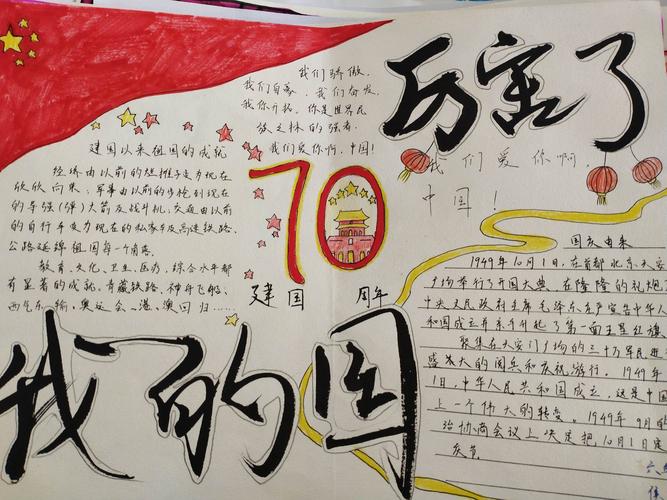 厉害了
我的国
70
建国 周年
我们骄傲,
我们自豪,我们奋发,
我们开拓。你是世界民
族之林的强者,
我们爱你啊,中国!
我们爱你啊,
中国!
建国以来祖国的成就
经济由以前的
欣欣向荣;军事由以前的步枪到现在
的导强(弹)火箭及战斗机;交通由以前
的自行车变为现在的私家车及高速铁路,
公路延绵祖国每一个角落。
教育、文化、卫生、医疗,综合水平都
有显著的成就。青藏铁路,神舟飞船、
西气东输,奥运会、港、澳回归……
国庆由来
1949年10月1日,在首都北京天安
广场举行了开国大典,在隆隆的礼炮
中央人民政府主席毛泽东庄严宣告中华人
和国成立并亲手升起了第一面五星红旗
聚集在天安门广场的三十万军民进
盛大的阅兵和庆祝游行。1949年
1日,中华人民共和国成立,这是中国
上一个伟大的转变。1949年9月的
治协商会议上决定把10月1日定
庆节